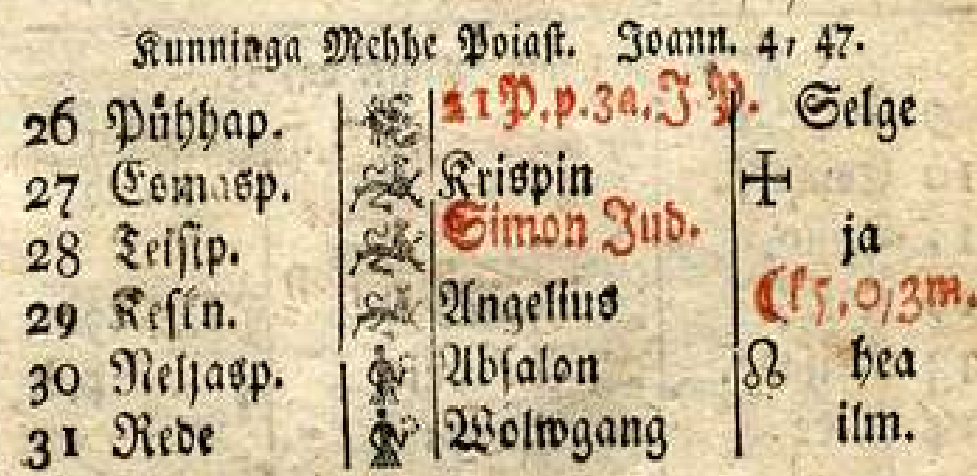 Kunninga Mehhe Poiast. Joann. 4, 47.
26 Pühhap. 21 P. p. 3a. J P. Selge
27 Esmasp. Krispin
28 Teisip. Simon Jud. ja
29 Keskn. Angelius 5, 0, 3m.
30 Neljasp. Absalon ☊ hea
31 Rede Wolwgang ilm.